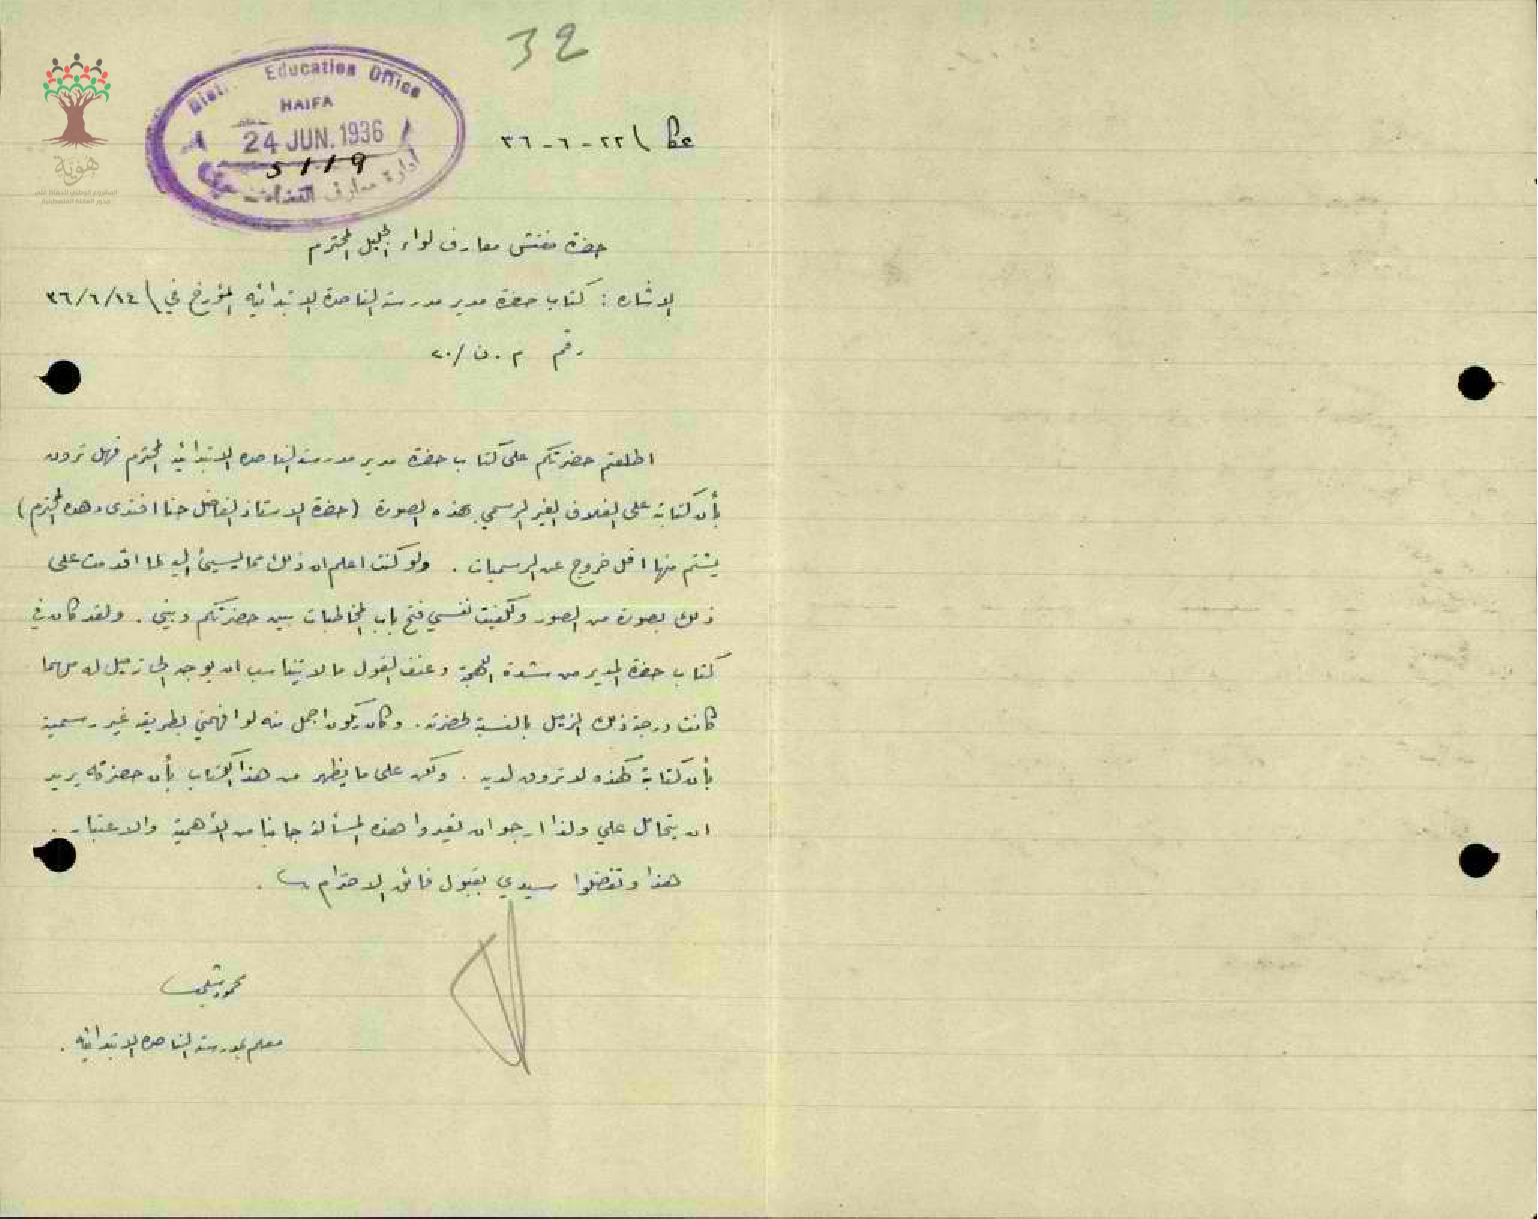 32
Dist. Education Office
HAIFA
24 JUN. 1936
5119
ادارة معارف القضاء حيفا
هوية
عكا \ ٢٢ - ٦ - ٣٦
حضرة مفتش معارف لواء الجليل المحترم
الاشاره : كتاب حضرة مدير مدرسة الناصرة الابتدائيه المؤرخ في \ ٣٦/٦/١٤
رقم م . ن / ٢٠
اطلعتم حضرتكم على كتاب حضرة مدير مدرسة الناصره الابتدائيه المحترم فهل ترون
بأن كتابة على الغلاف الغير الرسمي بهذه الصورة (حضرة الاستاذ الفاضل حنا افندى وهبه المحترم)
يشتم منها اقل خروج عن الرسميات . ولو كنت اعلم ان ذلك مما يسيئ اليه لما اقدمت على
ذلك بصورة من الصور ولكفيت نفسي فتح باب المخاطبات بين حضرتكم وبيني . ولقد كان في
كتاب حضرة المدير من شدة اللهجة وعنف القول ما لا يتناسب ان يوجه الى زميل له مهما
كانت درجة ذلك الزميل بالنسبة لحضرته . وكان يكون اجمل منه لو افهمني بطريقة غير رسمية
بأن كتابة كهذه لا تروق لديه . ولكن على ما يظهر من هذا الكتاب بأن حضرته يريد
ان يتحامل علي ولذا ارجو ان تعيروا هذه المسألة جانبا من الأهمية والاعتبار .
هذا وتفضلوا سيدي بقبول فائق الاحترام .
محمود
معلم بمدرسة الناصره الابتدائيه .